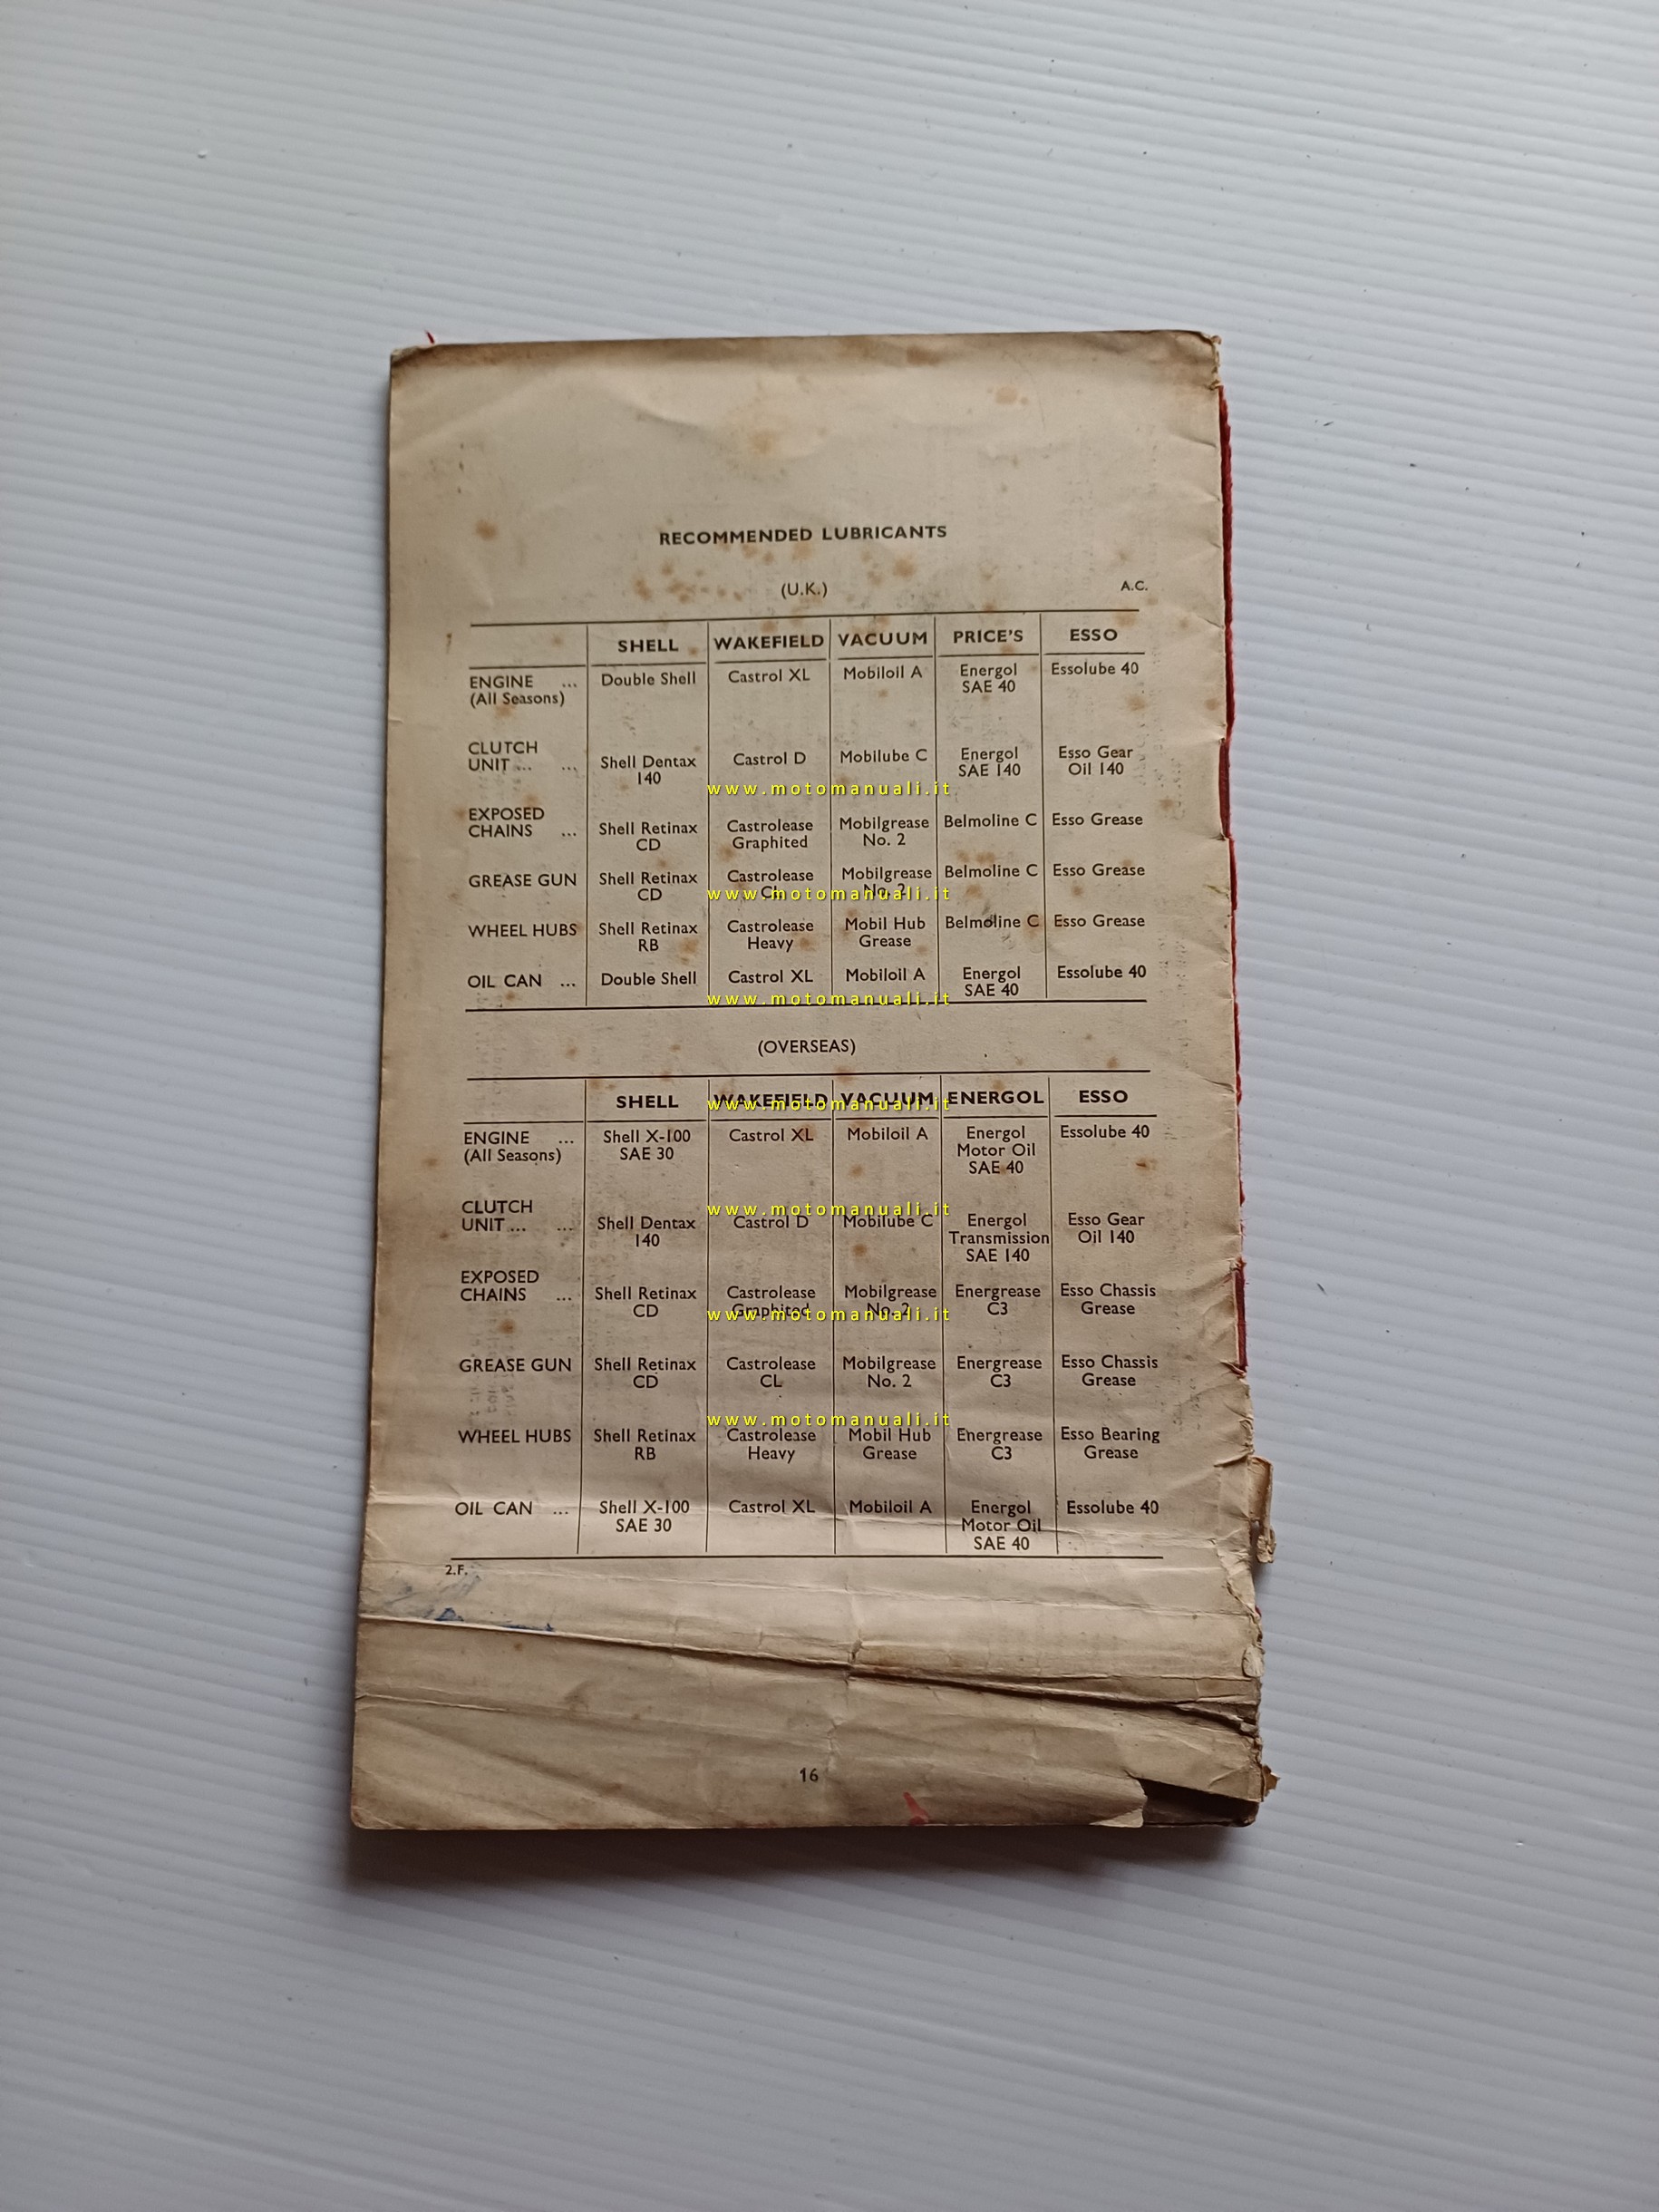 RECOMMENDED LUBRICANTS
(U.K.) A.C.
SHELL WAKEFIELD VACUUM PRICE'S ESSO
ENGINE ... Double Shell Castrol XL Mobiloil A Energol Essolube 40
(All Seasons) SAE 40
CLUTCH
UNIT ... ... Shell Dentax Castrol D Mobilube C Energol Esso Gear
140 SAE 140 Oil 140
www.motomanuali.it
EXPOSED
CHAINS ... Shell Retinax Castrolease Mobilgrease Belmoline C Esso Grease
CD Graphited No. 2
GREASE GUN Shell Retinax Castrolease Mobilgrease Belmoline C Esso Grease
CD CL No. 2
www.motomanuali.it
WHEEL HUBS Shell Retinax Castrolease Mobil Hub Belmoline C Esso Grease
RB Heavy Grease
OIL CAN ... Double Shell Castrol XL Mobiloil A Energol Essolube 40
SAE 40
www.motomanuali.it
(OVERSEAS)
SHELL WAKEFIELD VACUUM ENERGOL ESSO
www.motomanuali.it
ENGINE ... Shell X-100 Castrol XL Mobiloil A Energol Essolube 40
(All Seasons) SAE 30 Motor Oil
SAE 40
www.motomanuali.it
CLUTCH
UNIT ... ... Shell Dentax Castrol D Mobilube C Energol Esso Gear
140 Transmission Oil 140
SAE 140
EXPOSED
CHAINS ... Shell Retinax Castrolease Mobilgrease Energrease Esso Chassis
CD Graphited No. 2 C3 Grease
www.motomanuali.it
GREASE GUN Shell Retinax Castrolease Mobilgrease Energrease Esso Chassis
CD CL No. 2 C3 Grease
www.motomanuali.it
WHEEL HUBS Shell Retinax Castrolease Mobil Hub Energrease Esso Bearing
RB Heavy Grease C3 Grease
OIL CAN ... Shell X-100 Castrol XL Mobiloil A Energol Essolube 40
SAE 30 Motor Oil
SAE 40
2.F.
16